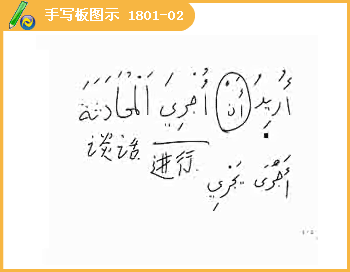 手写板图示 1801-02
أُرِيدُ أَنْ أُجْرِيَ اَلْمُحَادَثَةَ
谈话 进行
أَجْرَى يُجْرِي